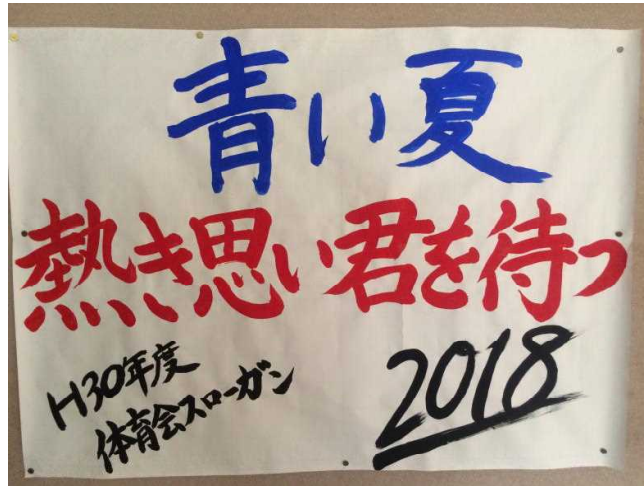 青い夏
熱き思い君を待つ
H30年度
体育会スローガン
2018